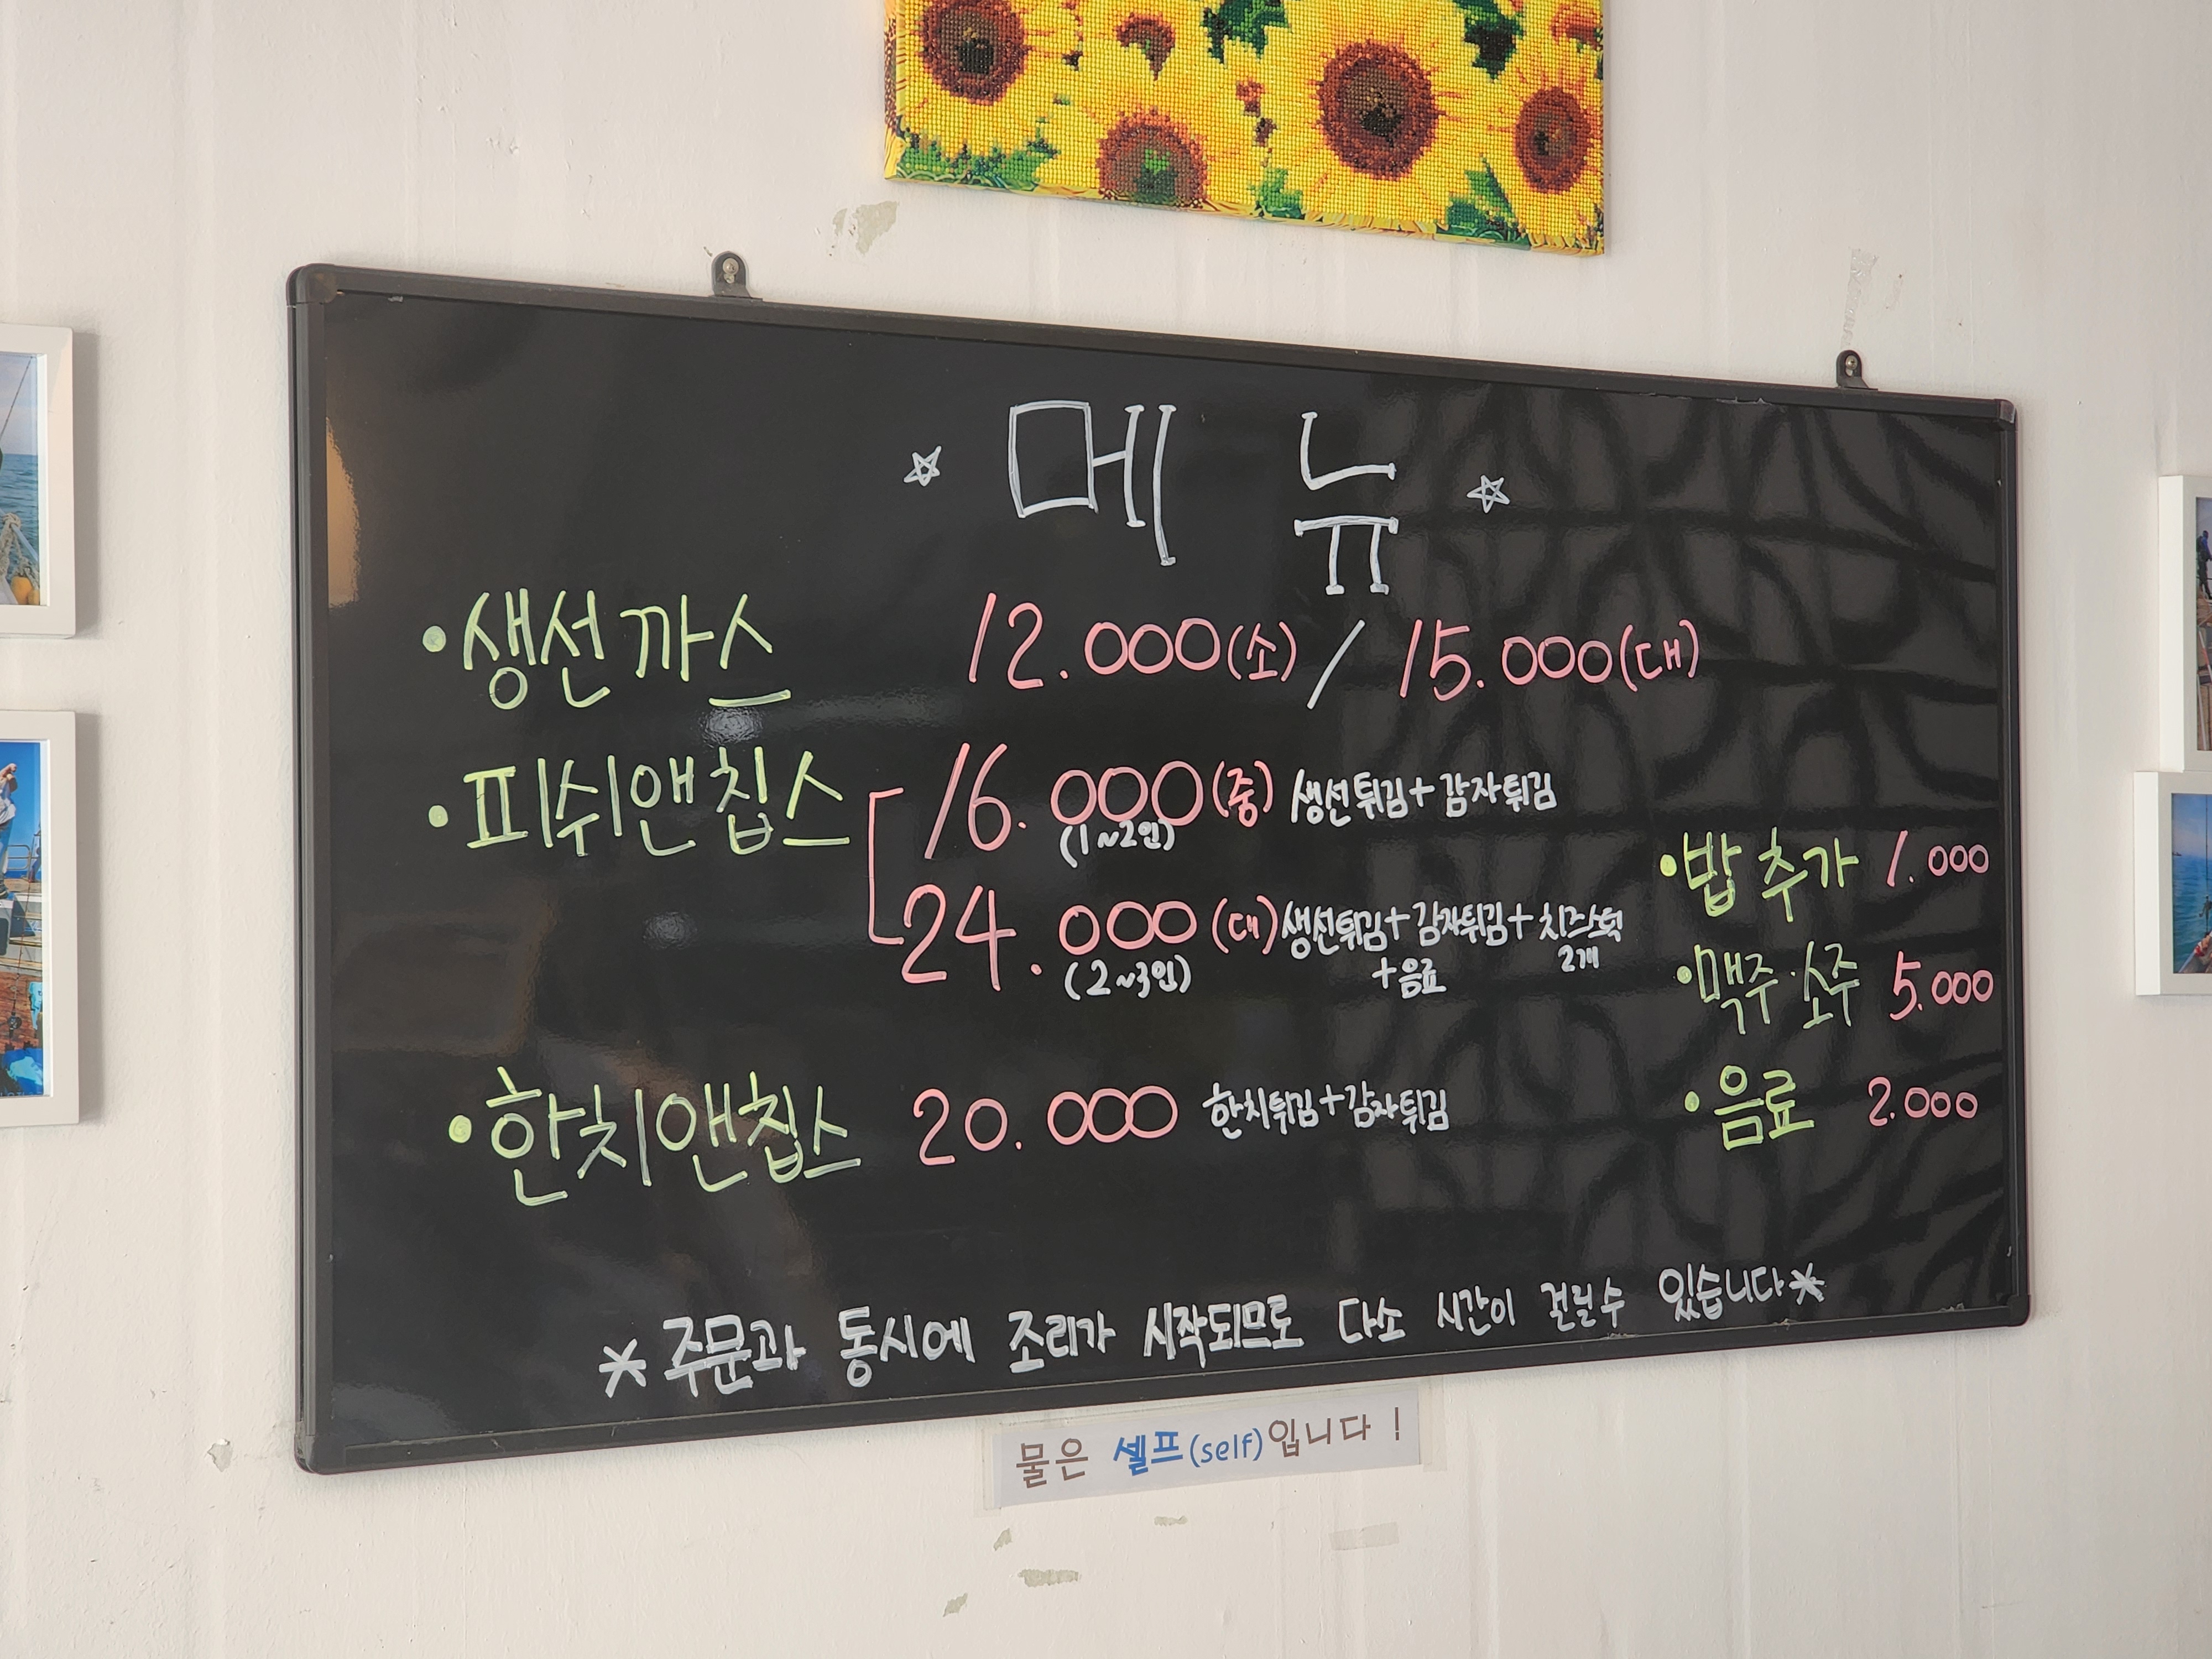 ☆ 메 뉴 ☆
• 생선까스 12.000(소) / 15.000(대)
• 피쉬앤칩스 16.000(중) 생선튀김+감자튀김
(1~2인)
24.000(대) 생선튀김+감자튀김+치즈스틱
2개
(2~3인) +음료
• 밥 추가 1.000
• 맥주·소주 5.000
• 음료 2.000
• 한치앤칩스 20.000 한치튀김+감자튀김
* 주문과 동시에 조리가 시작되므로 다소 시간이 걸릴수 있습니다 *
물은 셀프(self)입니다 !